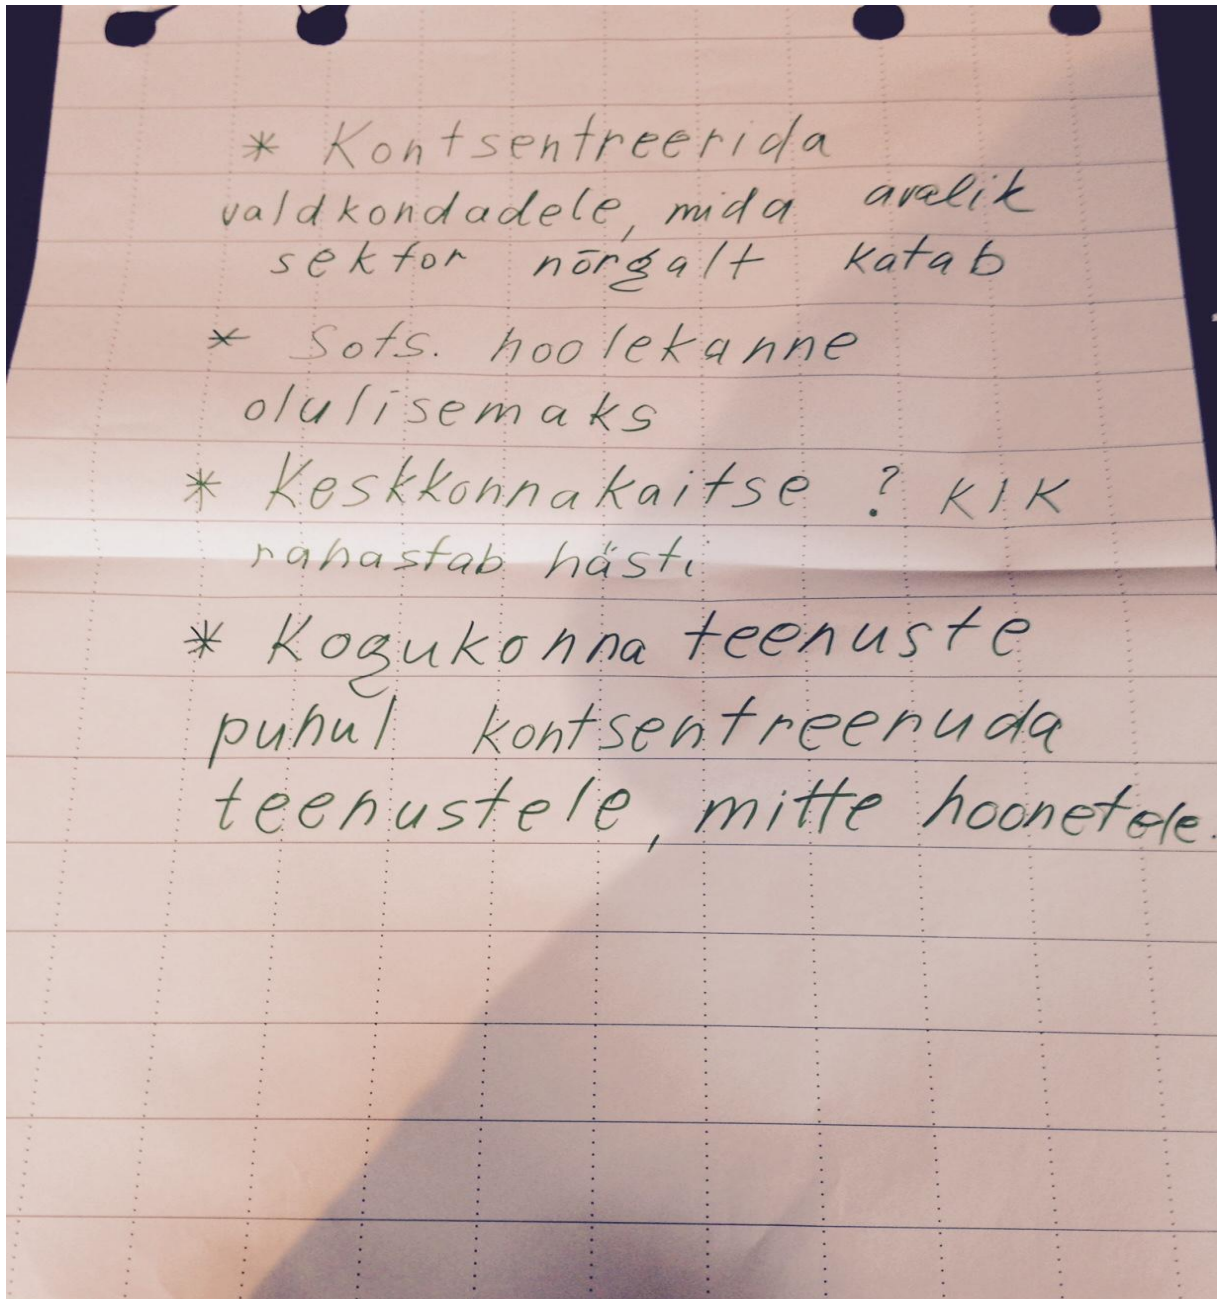 * Kontsentreerida
valdkondadele, mida avalik
sektor nõrgalt katab
* Sots. hoolekanne
olulisemaks
* Keskkonnakaitse ? KIK
rahastab hästi
* Kogukonna teenuste
puhul kontsentreeruda
teenustele, mitte hoonetele.